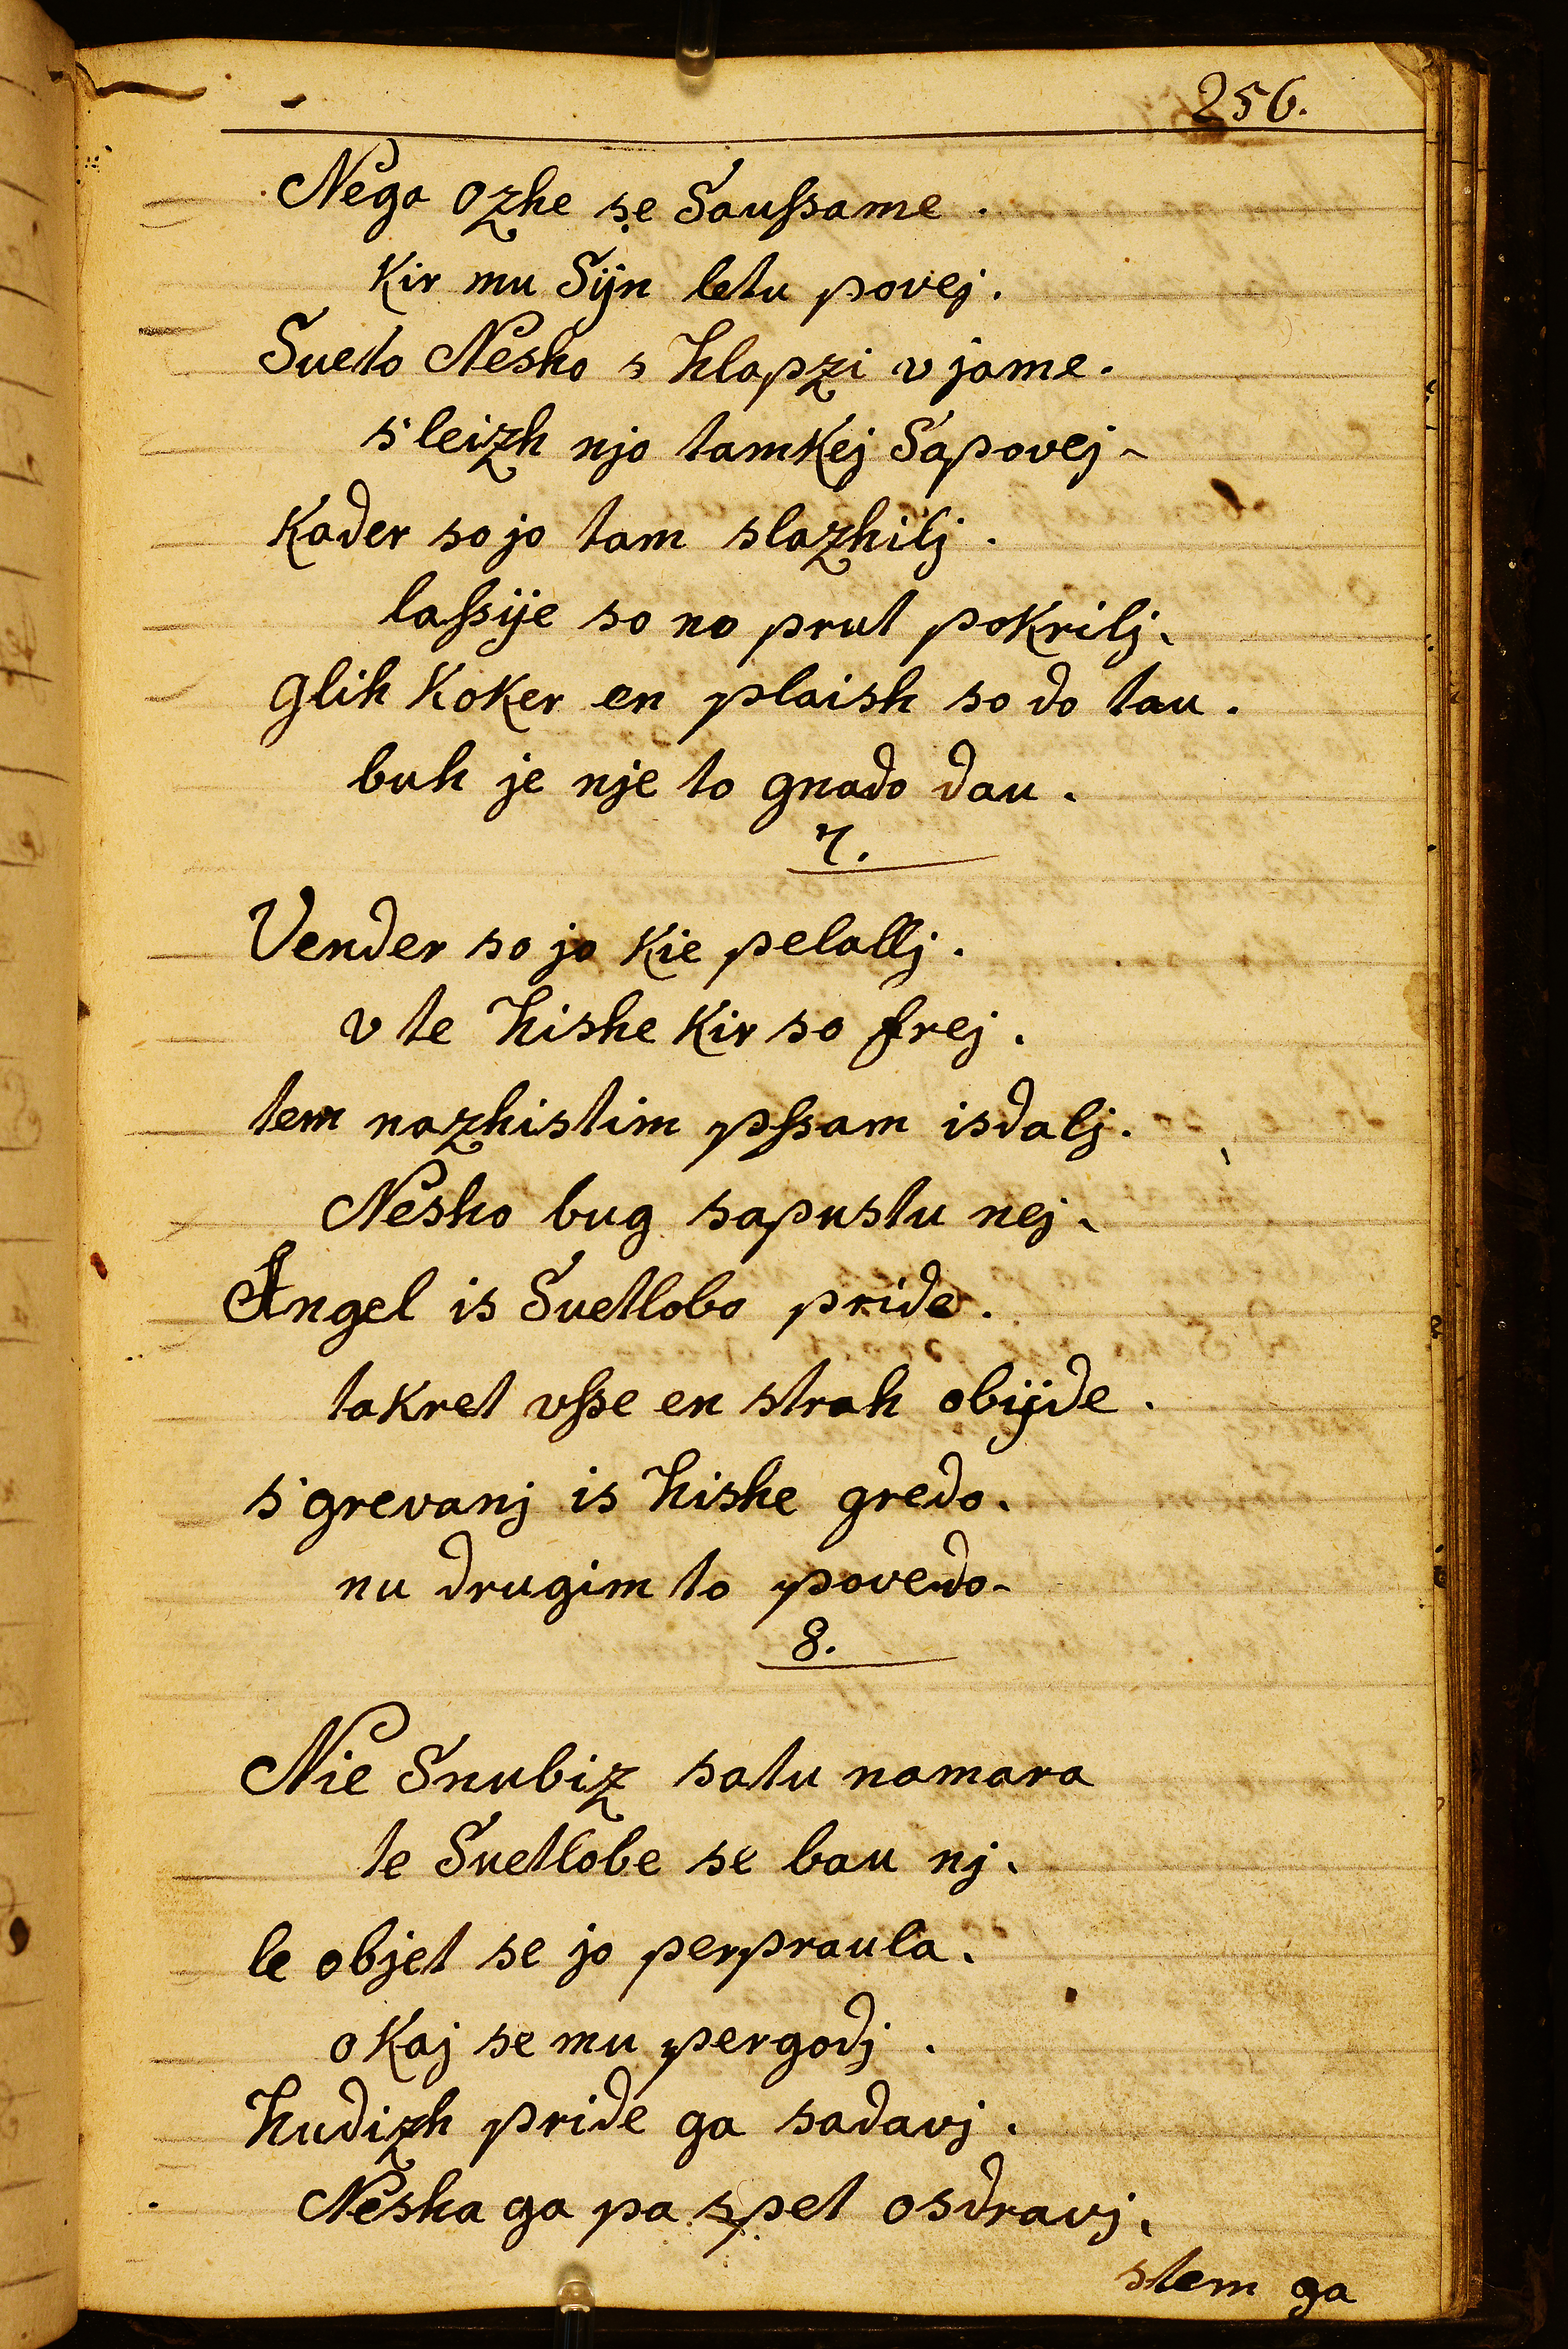 256.
Nega Ozhe se Saußame.
Kir mu Sijn letu povej.
Sueto Nesho s hlapzi v jame.
s'leizh njo tamkej Sapovej.
Kader so jo tam slazhilj.
laßije so no prut pokrilj.
glih koker en plaish so do tau.
buh je nje to gnado dau.
7.
Vender so jo kie pelallj.
v te hishe kir so frej.
tem nazhistim pßam isdalj.
Nesho bug sapustu nej.
Angel is Suetlobo pride.
takret vße en strah obijde.
s'grevanj is hishe gredo.
nu drugim to povedo.
8.
Nie Snubiz satu namara
te Suetlobe se bau nj.
le objet se jo perpraula.
o kaj se mu pergodj.
hudizh pride ga sadavj.
Nesha ga pa spet osdravj.
stem ga